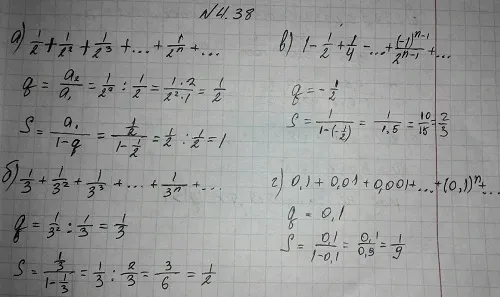 №4.38
а) 1/2 + 1/2² + 1/2³ + ... + 1/2ⁿ + ...
q = a₂/a₁ = 1/2² : 1/2 = 1·2/2²·1 = 1/2
S = a₁/1-q = 1/2/1-1/2 = 1/2 : 1/2 = 1
б) 1/3 + 1/3² + 1/3³ + ... + 1/3ⁿ + ...
q = 1/3² : 1/3 = 1/3
S = 1/3/1-1/3 = 1/3 : 2/3 = 3/6 = 1/2
в) 1 - 1/2 + 1/4 - ... + (-1)ⁿ⁻¹/2ⁿ⁻¹ + ...
q = -1/2
S = 1/1-(-1/2) = 1/1,5 = 10/15 = 2/3
г) 0,1 + 0,01 + 0,001 + ... + (0,1)ⁿ + ...
q = 0,1
S = 0,1/1-0,1 = 0,1/0,9 = 1/9